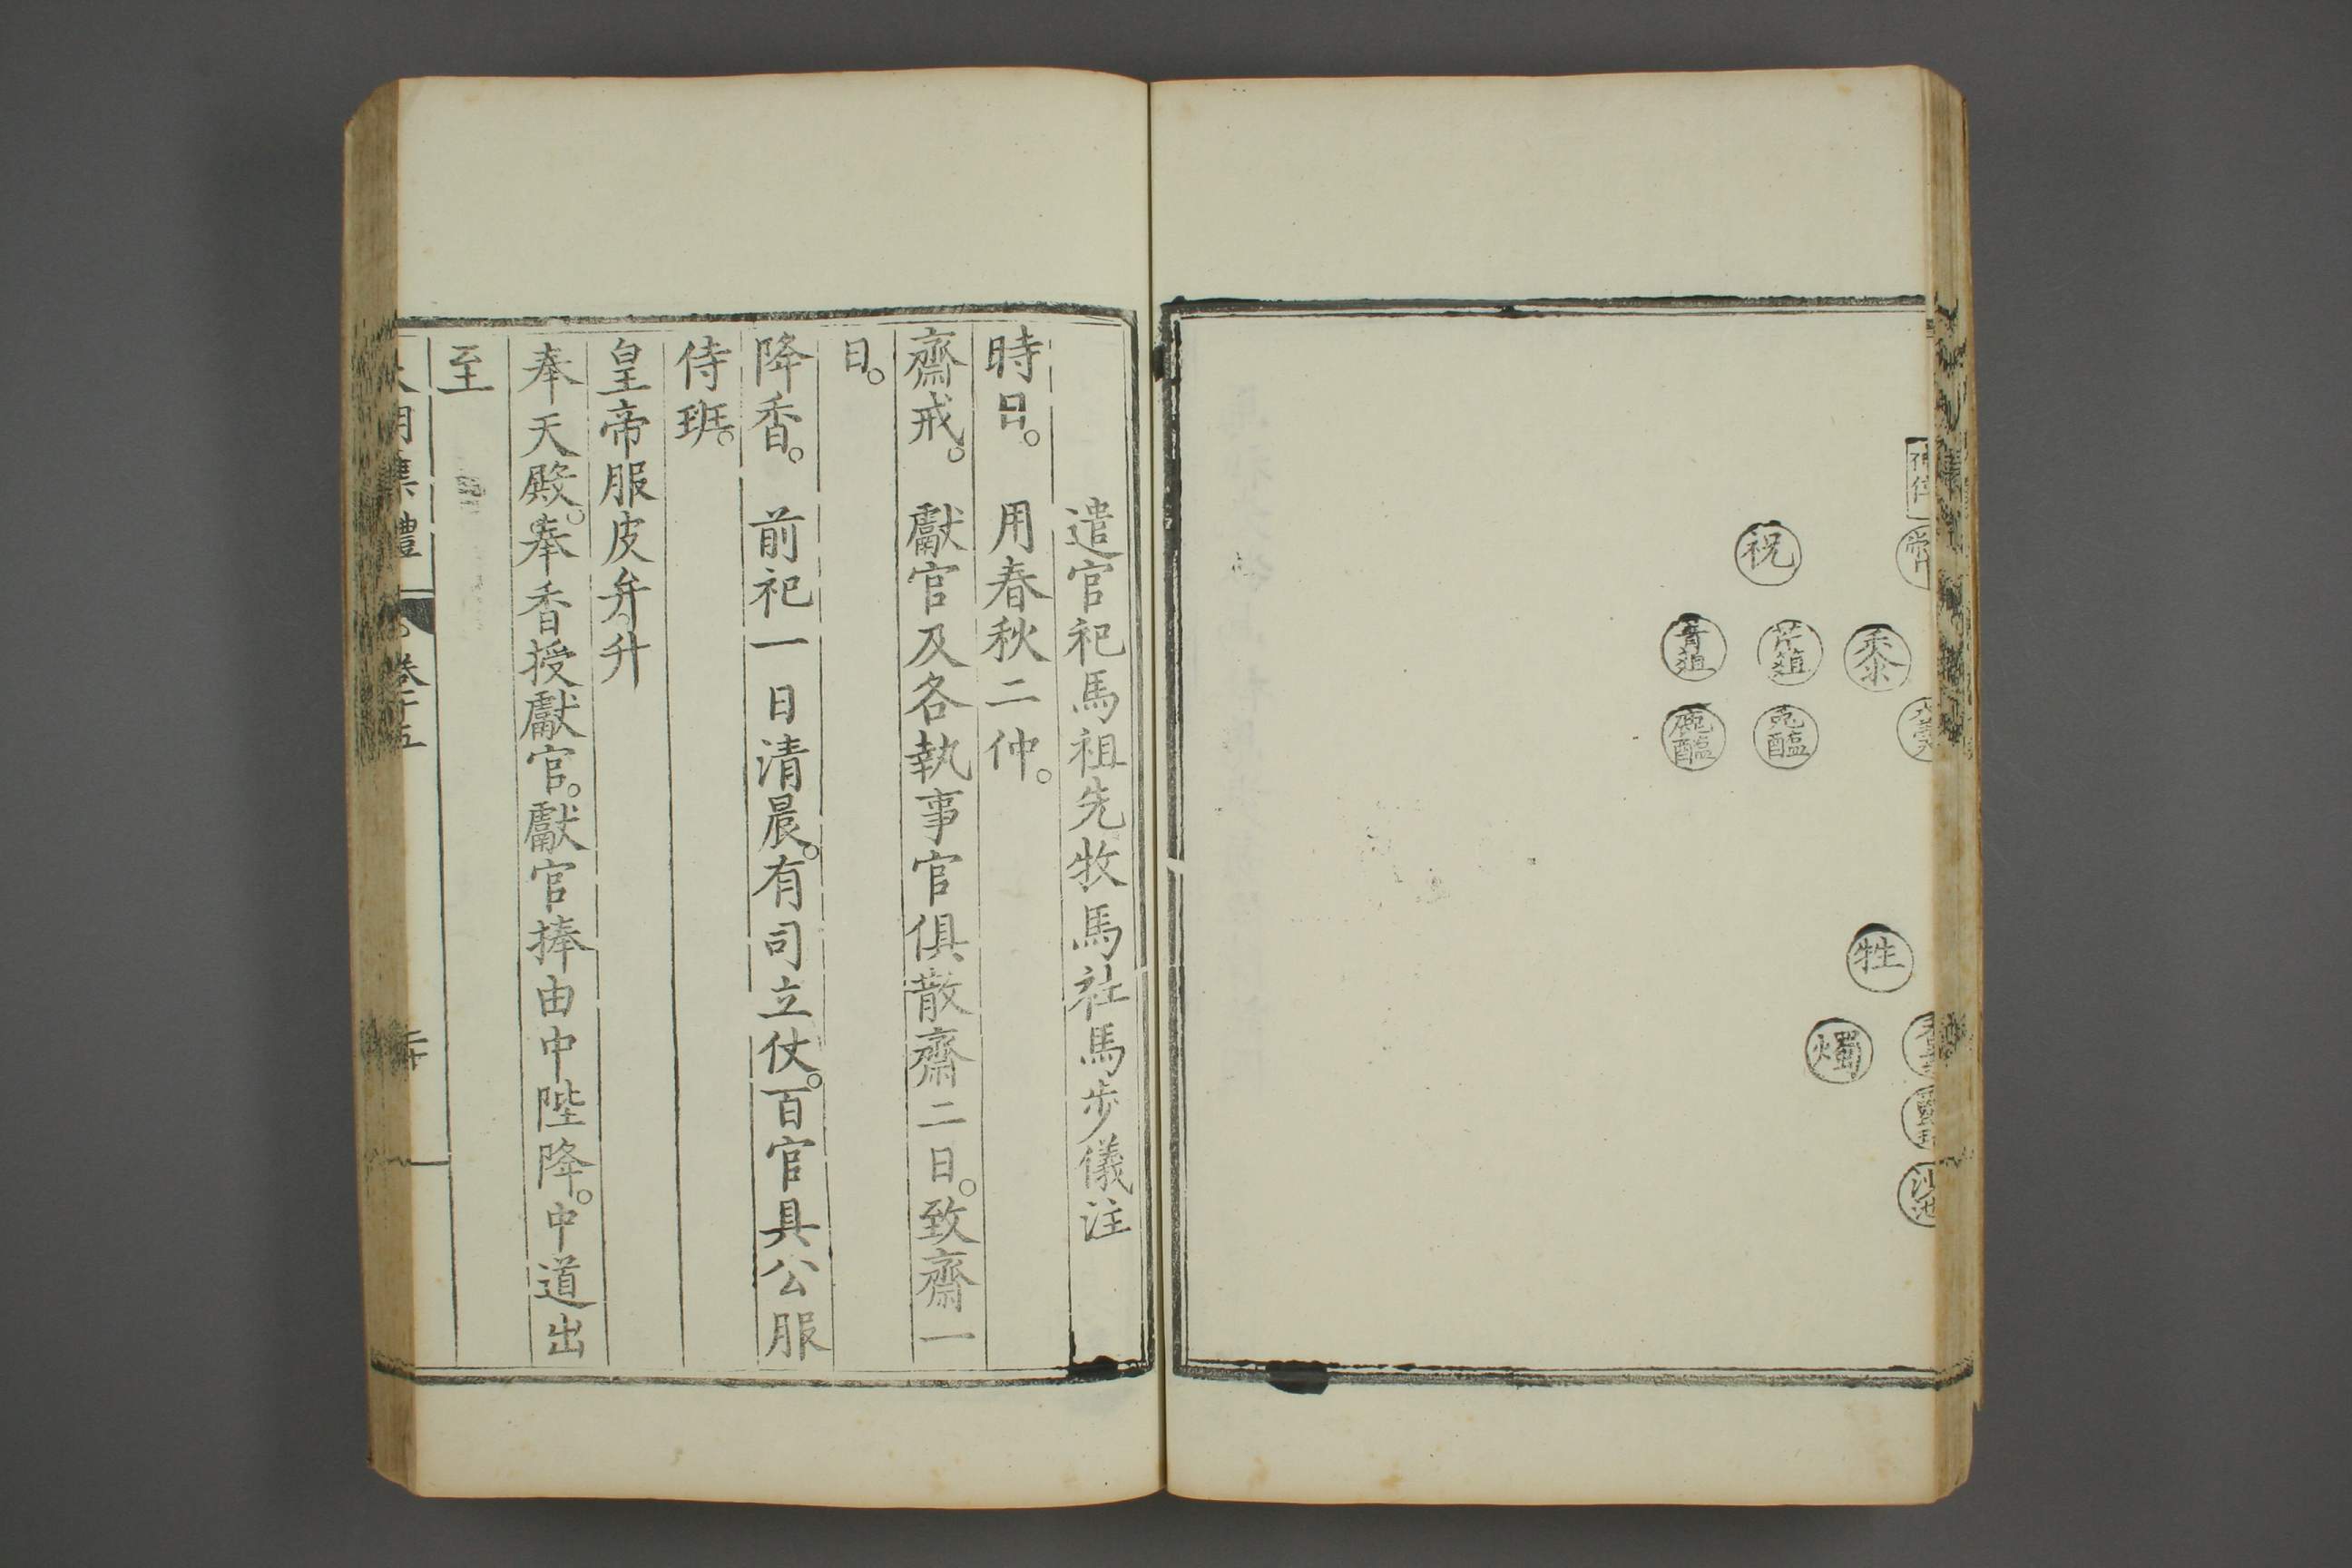 祝
黍
芹葅
菁葅
兎醢
鹿醢
牲
燭
沙池
遣官祀馬祖先牧馬社馬步儀注
時日。用春秋二仲。
齋戒。獻官及各執事官俱散齋二日。致齋一
日。
降香。前祀一日清晨。有司立仗。百官具公服
侍班。
皇帝服皮弁。升
奉天殿。奉香授獻官。獻官捧由中陛降。中道出
至
大明集禮 卷十五